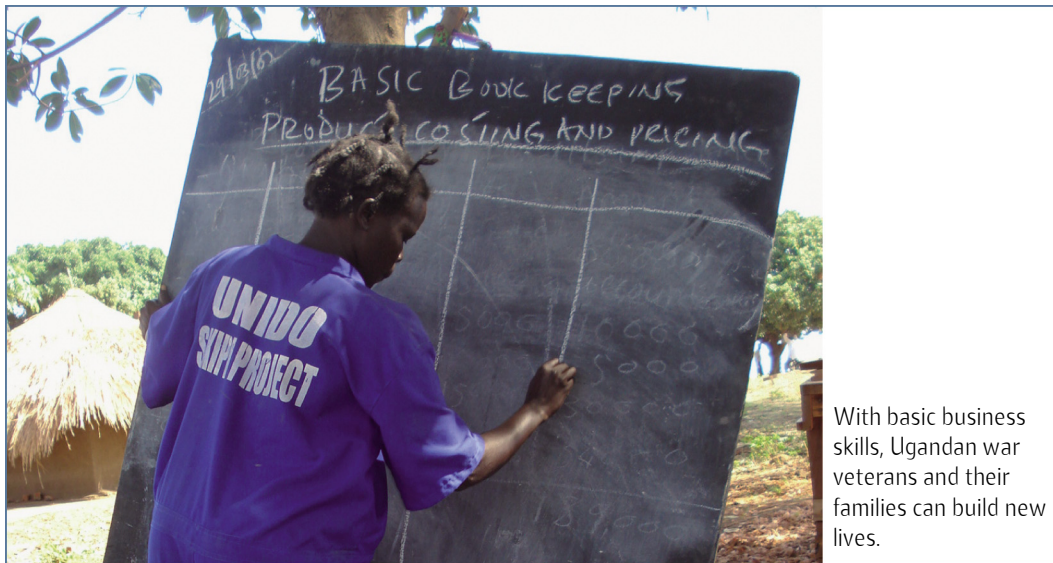 29/03/02
BASIC BOOK KEEPING
PRODUCT COSTING AND PRICING
UNIDO
SKIPI PROJECT
10000
5000
With basic business
skills, Ugandan war
veterans and their
families can build new
lives.